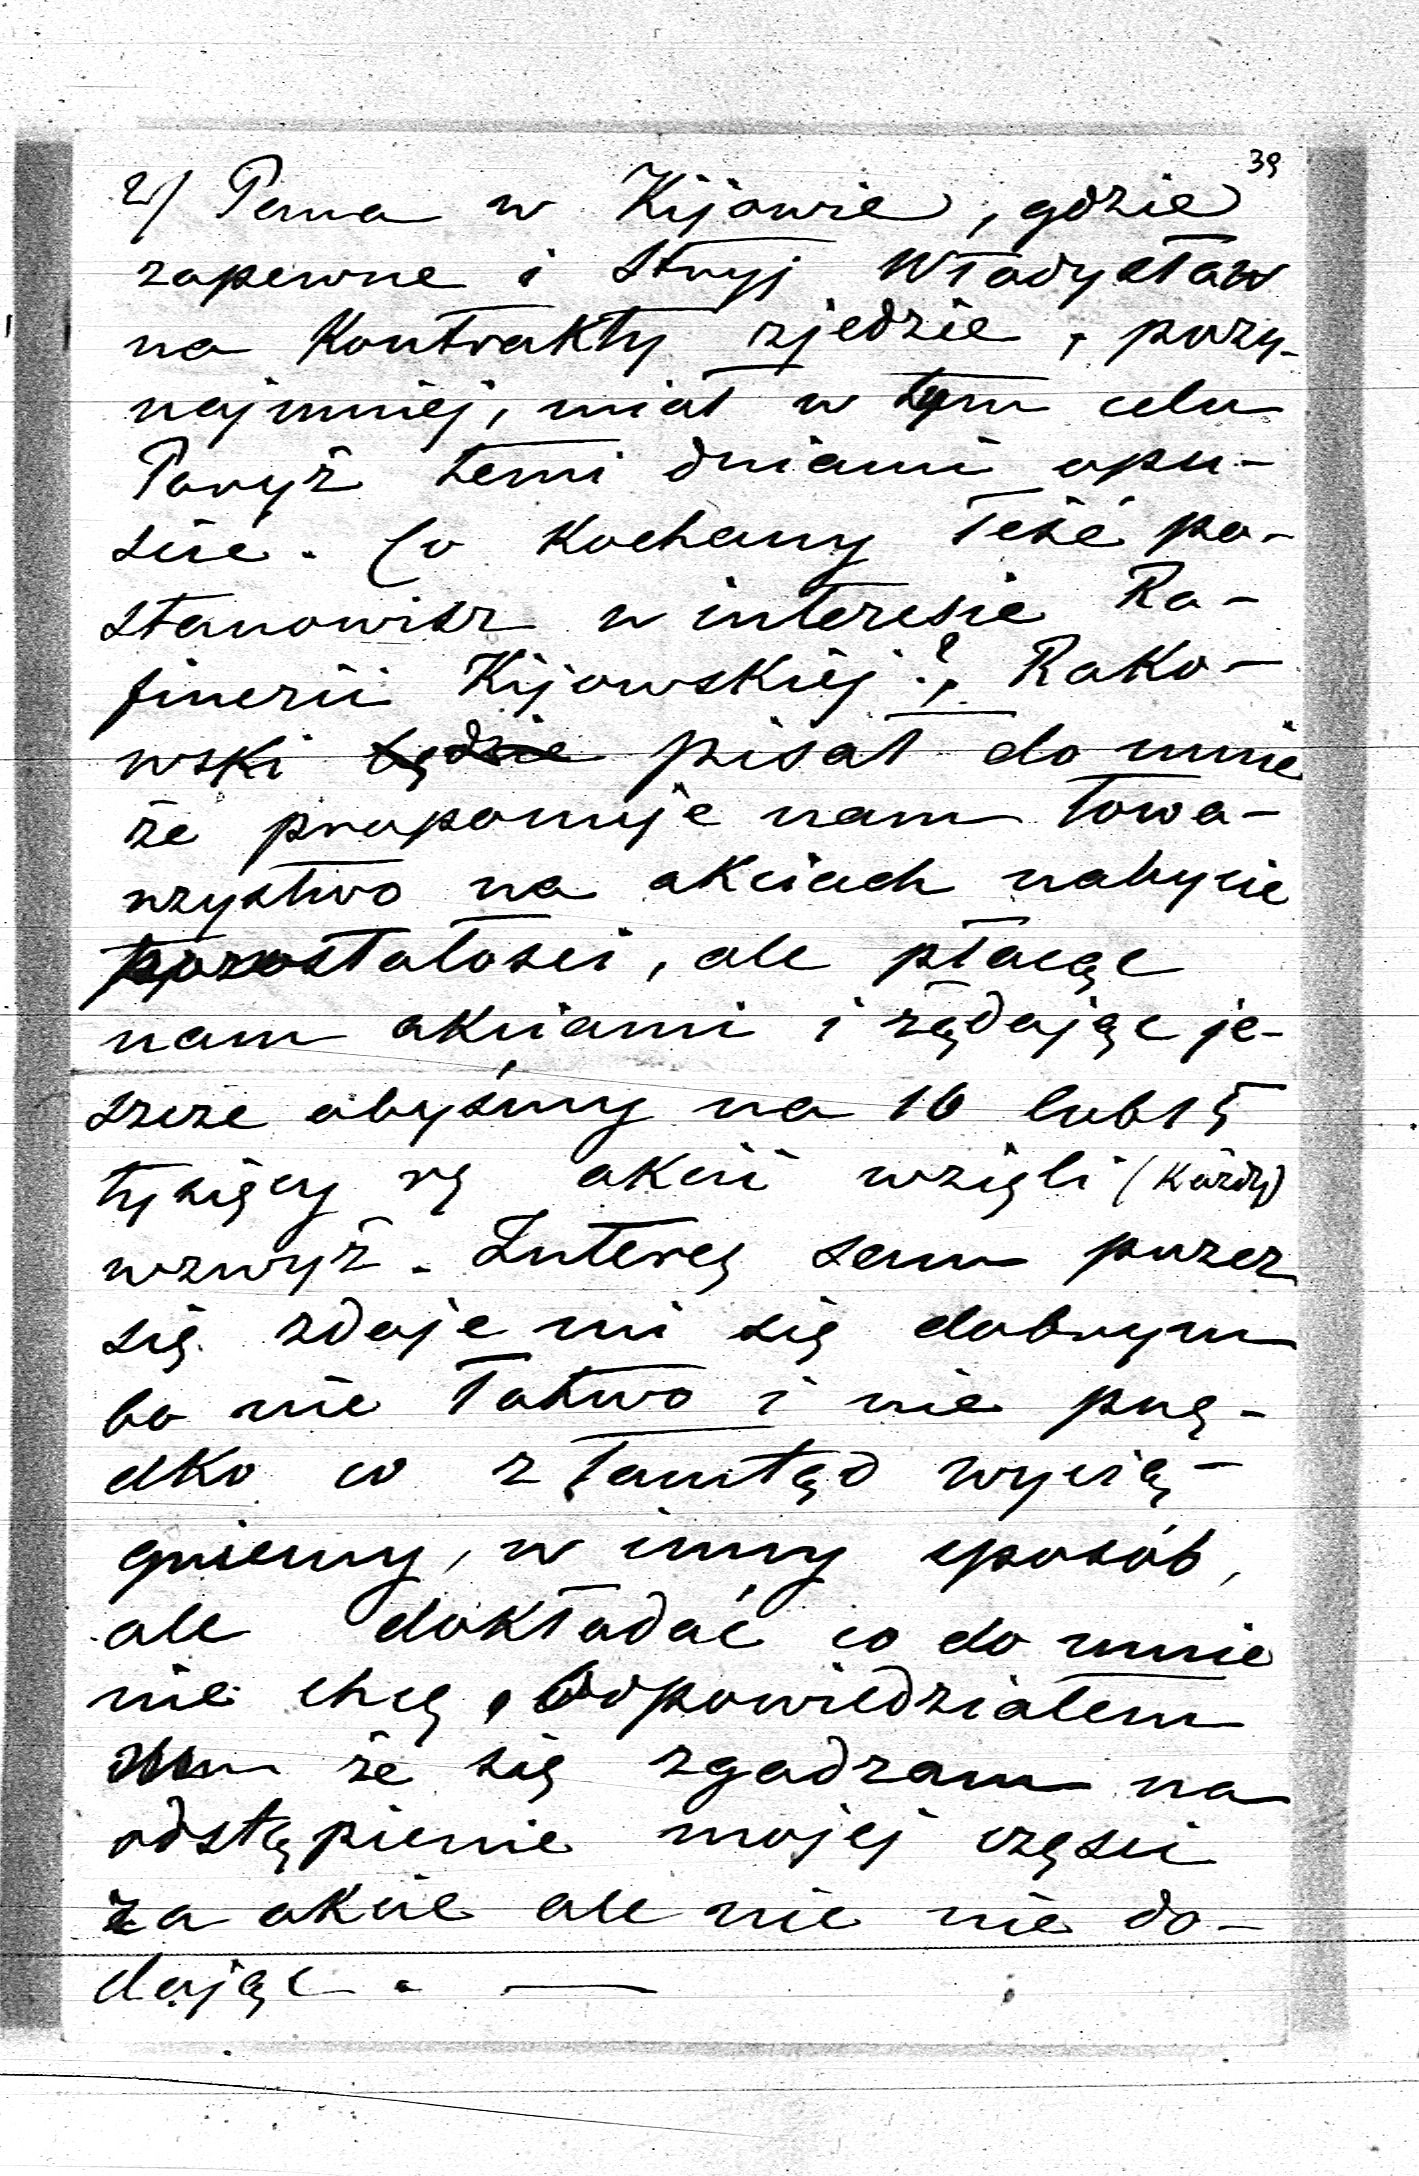 39
2) Pana w Kijowie, gdzie
zapewne i Stryj Władysław
na Kontrakty zjedzie, przy-
najmniej, miał w tym celu
Paryż temi dniami opu-
ście. Co kochany Teść po-
stanowisz w interesie Ra-
finerii Kijowskiéj?, Rako-
wski będzie pisał do mnie
że proponuje nam towa-
rzystwo na akciach nabycie
pozostałości, ale płacąc
nam akciami i żądając je-
szcze abyśmy na 10 lub 15
tysięcy rs akcii wzięli (każdy)
wzwyż. Interes sam przez
się zdaje mi się dobrym
bo nie łatwo i nie prę-
dko co z tamtąd wycią-
gniemy, w inny sposób,
ale dokładać co do mnie
nie chcę, Odpowiedziałem
że się zgadzam na
odstąpienie mojej części
za akcie ale nic nie do-
dając. —